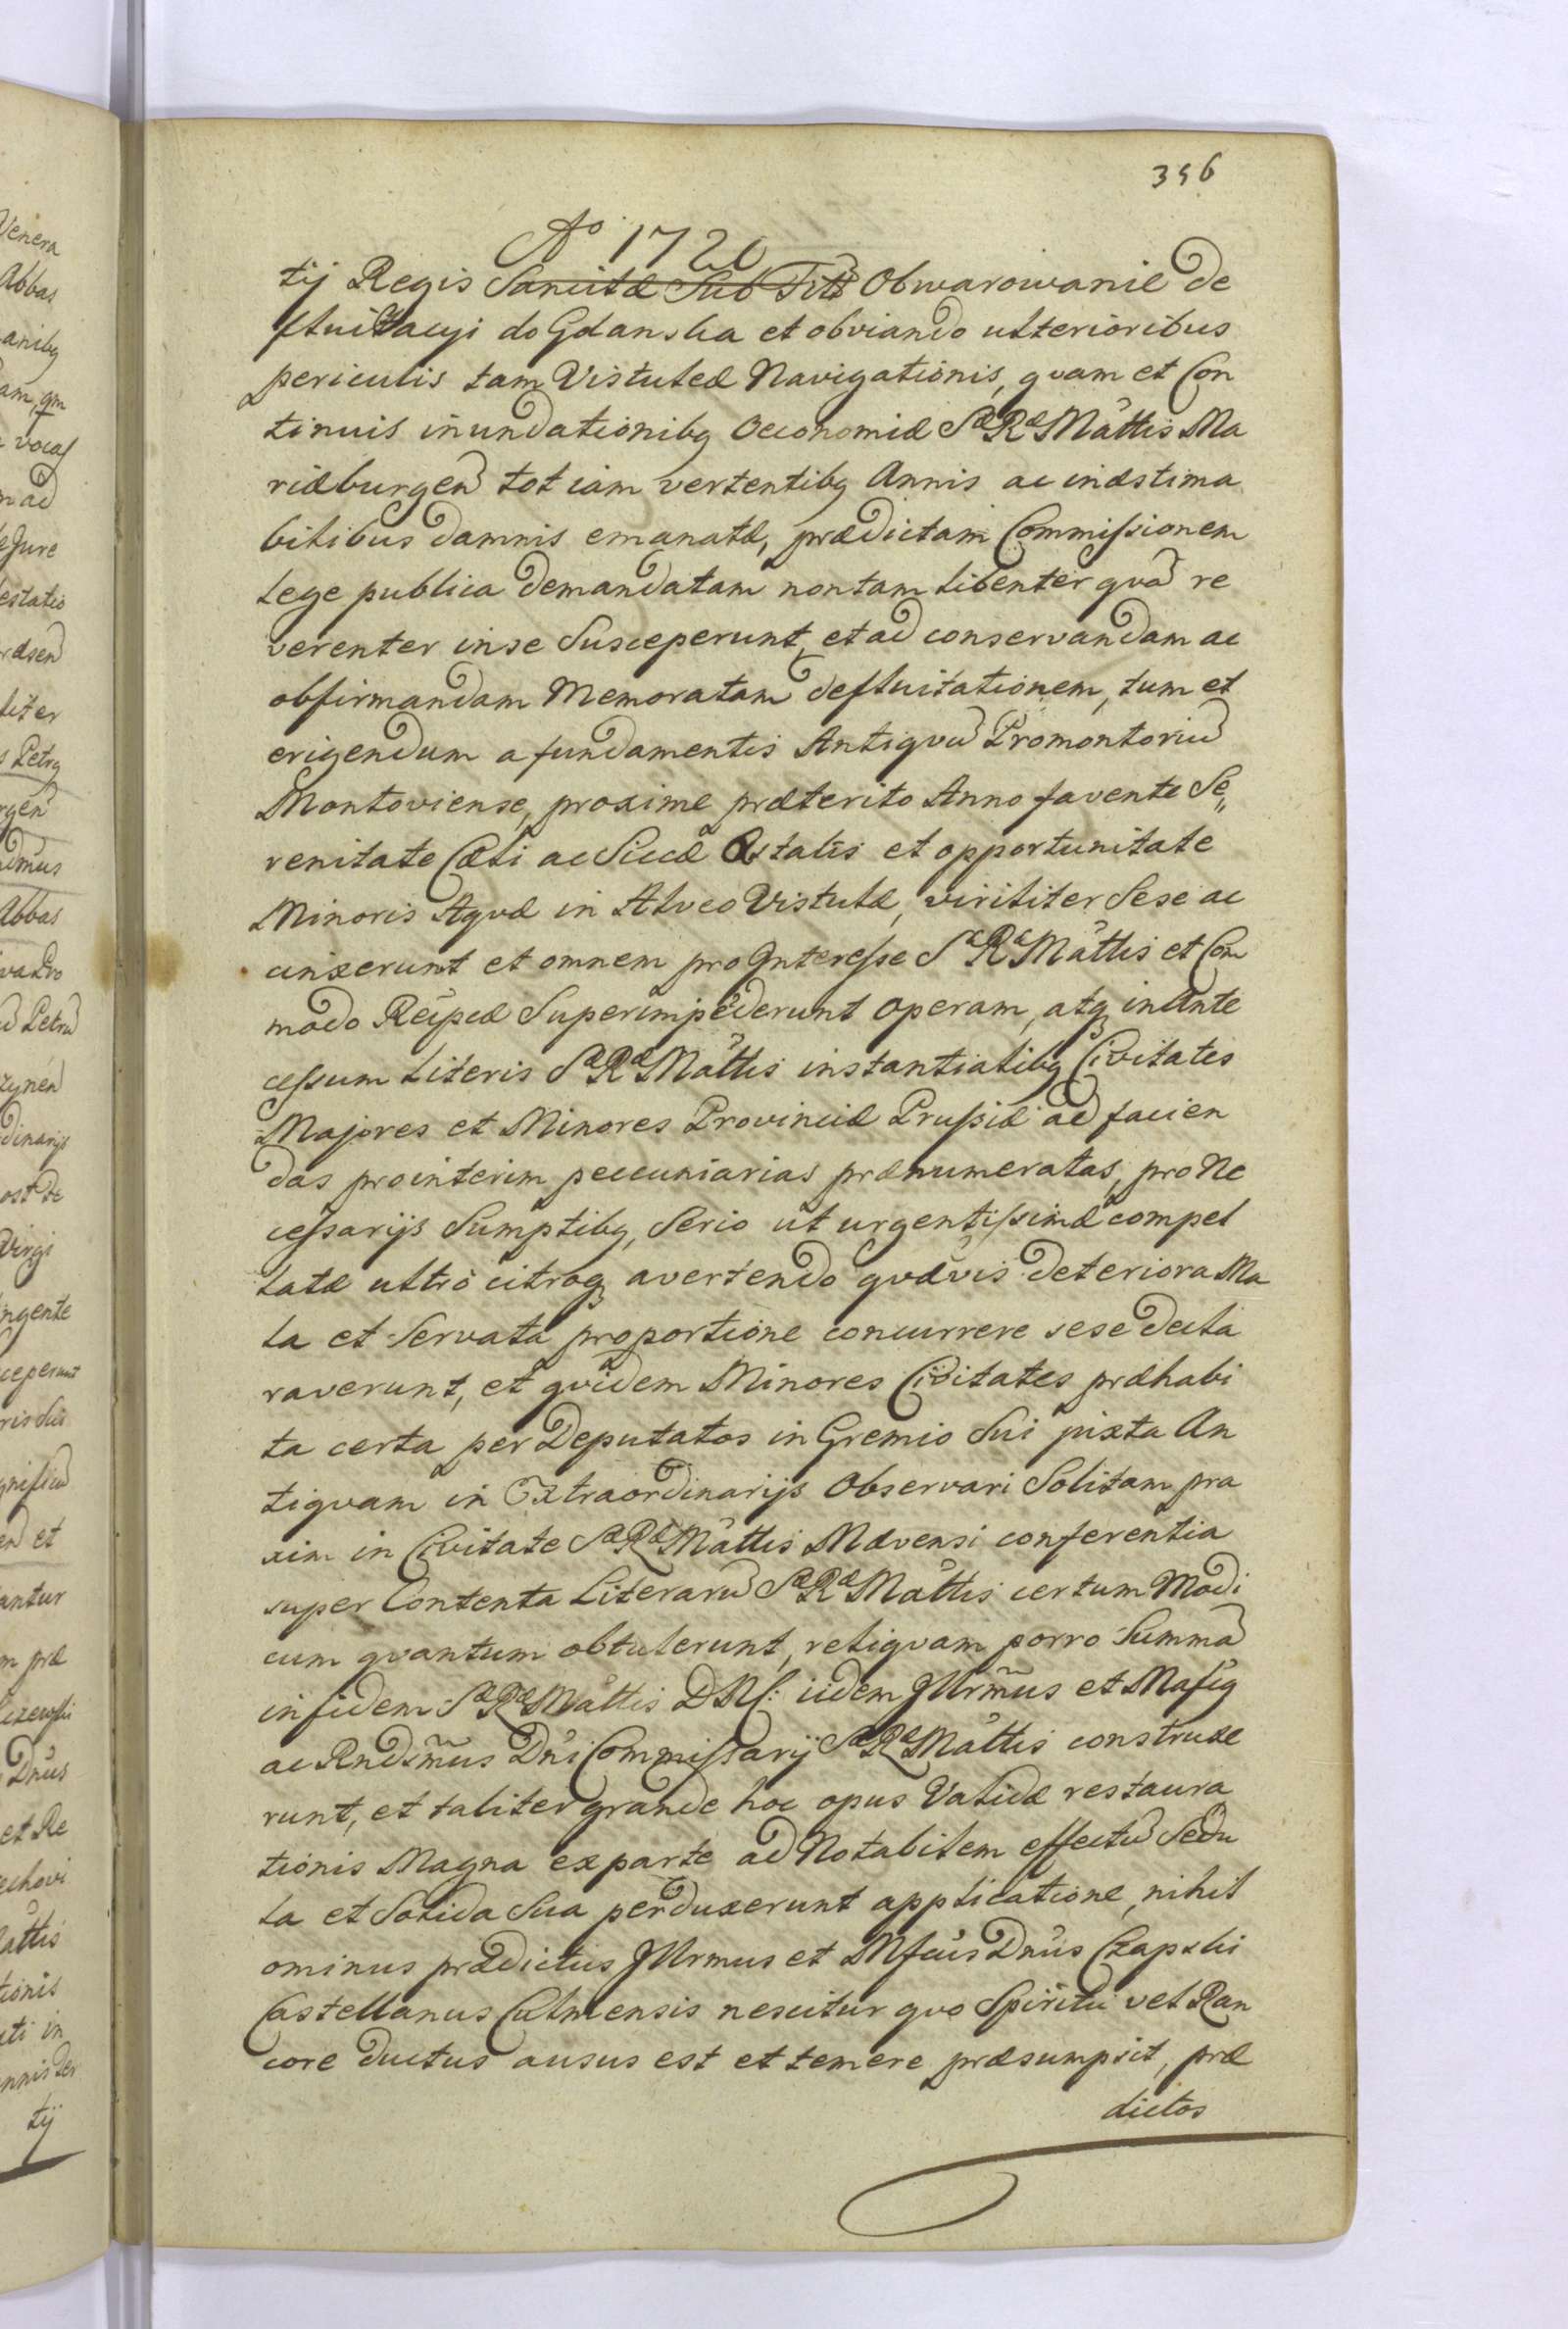 356
Aö 1720
tij Regis Sancitæ Sub Titt Obwarowanie de
fluitacyi do Gdanska et obviando ulterioribus
periculis tam Vistuleæ Navigationis, qvam et Con
tinuis inundationibq Oeconomiæ Sæ Ræ Mättis Ma
riæburgen tot iam vertentibq Annis ac inæstima
bilibus damnis emanatæ, prædictam Commissionem
Lege publica demandatam non tam libenter qva re
verenter in se Susceperunt, et ad conservandam ac
obfirmandam Memoratam defluitationem, tum et
erigendum a fundamentis Antiqvu Promontoriu
Montoviense, proxime præterito Anno favente Se„
renitate Cæli ac Siccæ Æstatis et opportunitate
Minoris Aqvæ in Alveo Vistulæ, viriliter Sese ac
cinxerunt et omnem pro Interesse Sæ Ræ Mättis et Com
modo Reipcæ Superimpederunt operam, atq in Ante
cessum Literis Sæ Ræ Mättis instantialibq Civitates
Majores et Minores Provinciæ Prussiæ ad facien
das prointerim peccuniarias prænumeratas, pro Ne
cessarijs Sumptibq, Serio ut urgentissimæ compel
latæ ultrò citroq avertendo qvævis deteriora Ma
la et Servata proportione concurrere sese decla
raverunt, et qvidem Minores Civitates præhabi
ta certa per Deputatos in Gremio Sui juxta An
tiqvam in Extraordinarijs Observari Solitam pra
xim in Civitate Sæ Ræ Mättis Mævensi conferentia
super Contenta Literaru Sæ Ræ Mättis certum Modi
cum qvantum obtulerunt, reliqvam porro Summa
in fidem Sæ Ræ Mättis DNC: iidem JIlrm̃us et Mafiq
ac Rndsm̃us Dni Commissarij Sæ Ræ Mättis construxe
runt, et taliter grande hoc opus Validæ restaura
tionis Magna exparte ad Notabilem effectu Sedu
la et Solida Sua perduxerunt applicatione, nihil
ominus prædictus JIlrmus et Mfcus Dnus Czapski
Castellanus Culmensis nescitur qvo Spiritu vel Ran
core ductus ausus est et temere præsumpsit, præ
dictos